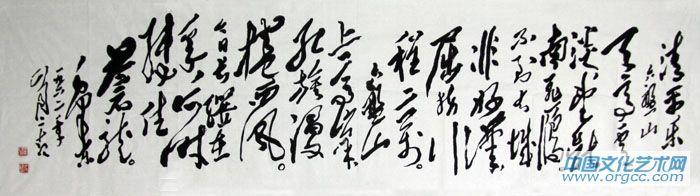 清平乐
六盤山
天高云
淡望断
南飞雁
不到长城
非好漢
屈指行
程二萬。
六盤山
上高峰
红旗漫
捲西风。
今日长缨在
手何时
缚住
苍龙。
毛泽东
一九六一年
九月
中国文化艺术网
www.orgcc.com